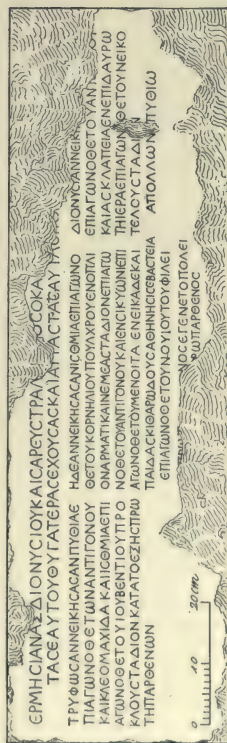 ΕΡΜΗCΙΑΝΑΞΔΙΟΝΥCΙΟΥΚΑΙCΑΡΕΥCΤΡΑΛ ΟCΟΚΑ
ΤΑCΕΑΥΤΟΥΘΥΓΑΤΕΡΑCΕΧΟΥCΑCΚΑΙΑΥΤΑCΤΑCΕΑΥ
ΤΡΥΦΩCΑΝΝΕΙΚΗCΑCΑΝΠΥΘΙΑΕ
ΠΙΑΓΩΝΟΘΕΤΩΝΑΝΤΙΓΟΝΟΥ
ΚΑΙΚΛΕΟΜΑΧΙΔΑΚΑΙΙCΘΜΙΑΕΠΙ
ΑΓΩΝΟΘΕΤΟΥΙΟΥΒΕΝΤΙΟΥΠΡΟ
ΚΛΟΥCΤΑΔΙΟΝΚΑΤΑΤΟΕΞΗCΠΡΩ
ΤΗΠΑΡΘΕΝΩΝ
ΗΔΕΑΝΝΕΙΚΗCΑCΑΝΙCΘΜΙΑΕΠΙΑΓΩΝΟ
ΘΕΤΟΥΚΟΡΝΗΛΙΟΥΠΟΥΛΧΡΟΥΕΝΟΠΛΙ
ΟΝΑΡΜΑΤΙΚΑΙΝΕΜΕΑCΤΑΔΙΟΝΕΠΙΑΓΩ
ΝΟΘΕΤΟΥΑΝΤΙΓΟΝΟΥΚΑΙΕΝCΙΚΥΩΝΙΕΠΙ
ΑΓΩΝΟΘΕΤΟΥΜΕΝΟΙΤΑ ΕΝΕΙΚΑΔΕΚΑΙ
ΠΑΙΔΑCΚΙΘΑΡΩΔΟΥCΑΘΗΝΗCΙCΕΒΑCΤΕΙΑ
ΕΠΙΑΓΩΝΟΘΕΤΟΥΝΟΥΙΟΥΤΟΥΦΙΛΕΙ
ΝΟCΕΓΕΝΕΤΟΠΟΛΕΙ
ΡΩΠΑΡΘΕΝΟC
ΔΙΟΝΥCΙΑΝΝΕΙΚ
ΕΠΙΑΓΩΝΟΘΕΤΟΥΑΝΤ ΟΥ
ΚΑΙΑCΚΛΑΠΕΙΑΕΝΕΠΙΔΑΥΡΩ
ΤΗΙΕΡΑΕΠΙΑΓΩΝΟΘΕΤΟΥΝΕΙΚΟ
ΤΕΛΟΥCΤΑΔΙΟΝ
ΑΠΟΛΛΩΝΙΠΥΘΙΩ
0 10 20cm